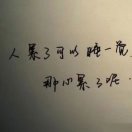 人累了可以睡一觉，
那心累了呢